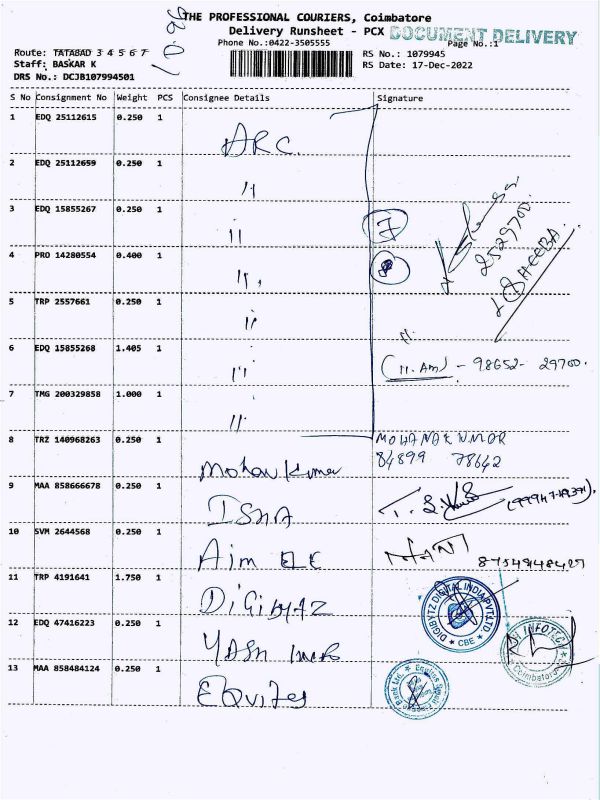 THE PROFESSIONAL COURIERS, Coimbatore
Delivery Runsheet - PCX
DOCUMENT DELIVERY
Phone No.:0422-3505555
Page No.:1
Route: TATABAD 3 4 5 6 7
RS No.: 1079945
Staff: BASKAR K
RS Date: 17-Dec-2022
DRS No.: DCJB107994501
S No Consignment No Weight PCS Consignee Details Signature
1 EDQ 25112615 0.250 1 ARC
2 EDQ 25112659 0.250 1 "
3 EDQ 15855267 0.250 1 " 7
4 PRO 14280554 0.400 1 "
2529700
SHEEBA
5 TRP 2557661 0.250 1 "
6 EDQ 15855268 1.405 1 " (11.Am) - 98652 - 29700.
7 TMG 200329858 1.000 1 "
8 TRZ 140968263 0.250 1 Mohan Kumar MOHANAKUMAR
84899 78642
9 MAA 858666678 0.250 1 ISHA
10 SVM 2644568 0.250 1 Aim ELE MANI 8754948427
11 TRP 4191641 1.750 1 DiGiBYTZ
DIGIBYTZ DIGITAL INDIA PVT LTD
★ CBE ★
12 EDQ 47416223 0.250 1 YASH INFO
INFOTECH
Coimbatore
13 MAA 858484124 0.250 1 EQuitas
Equitas Small Finance Bank Ltd.